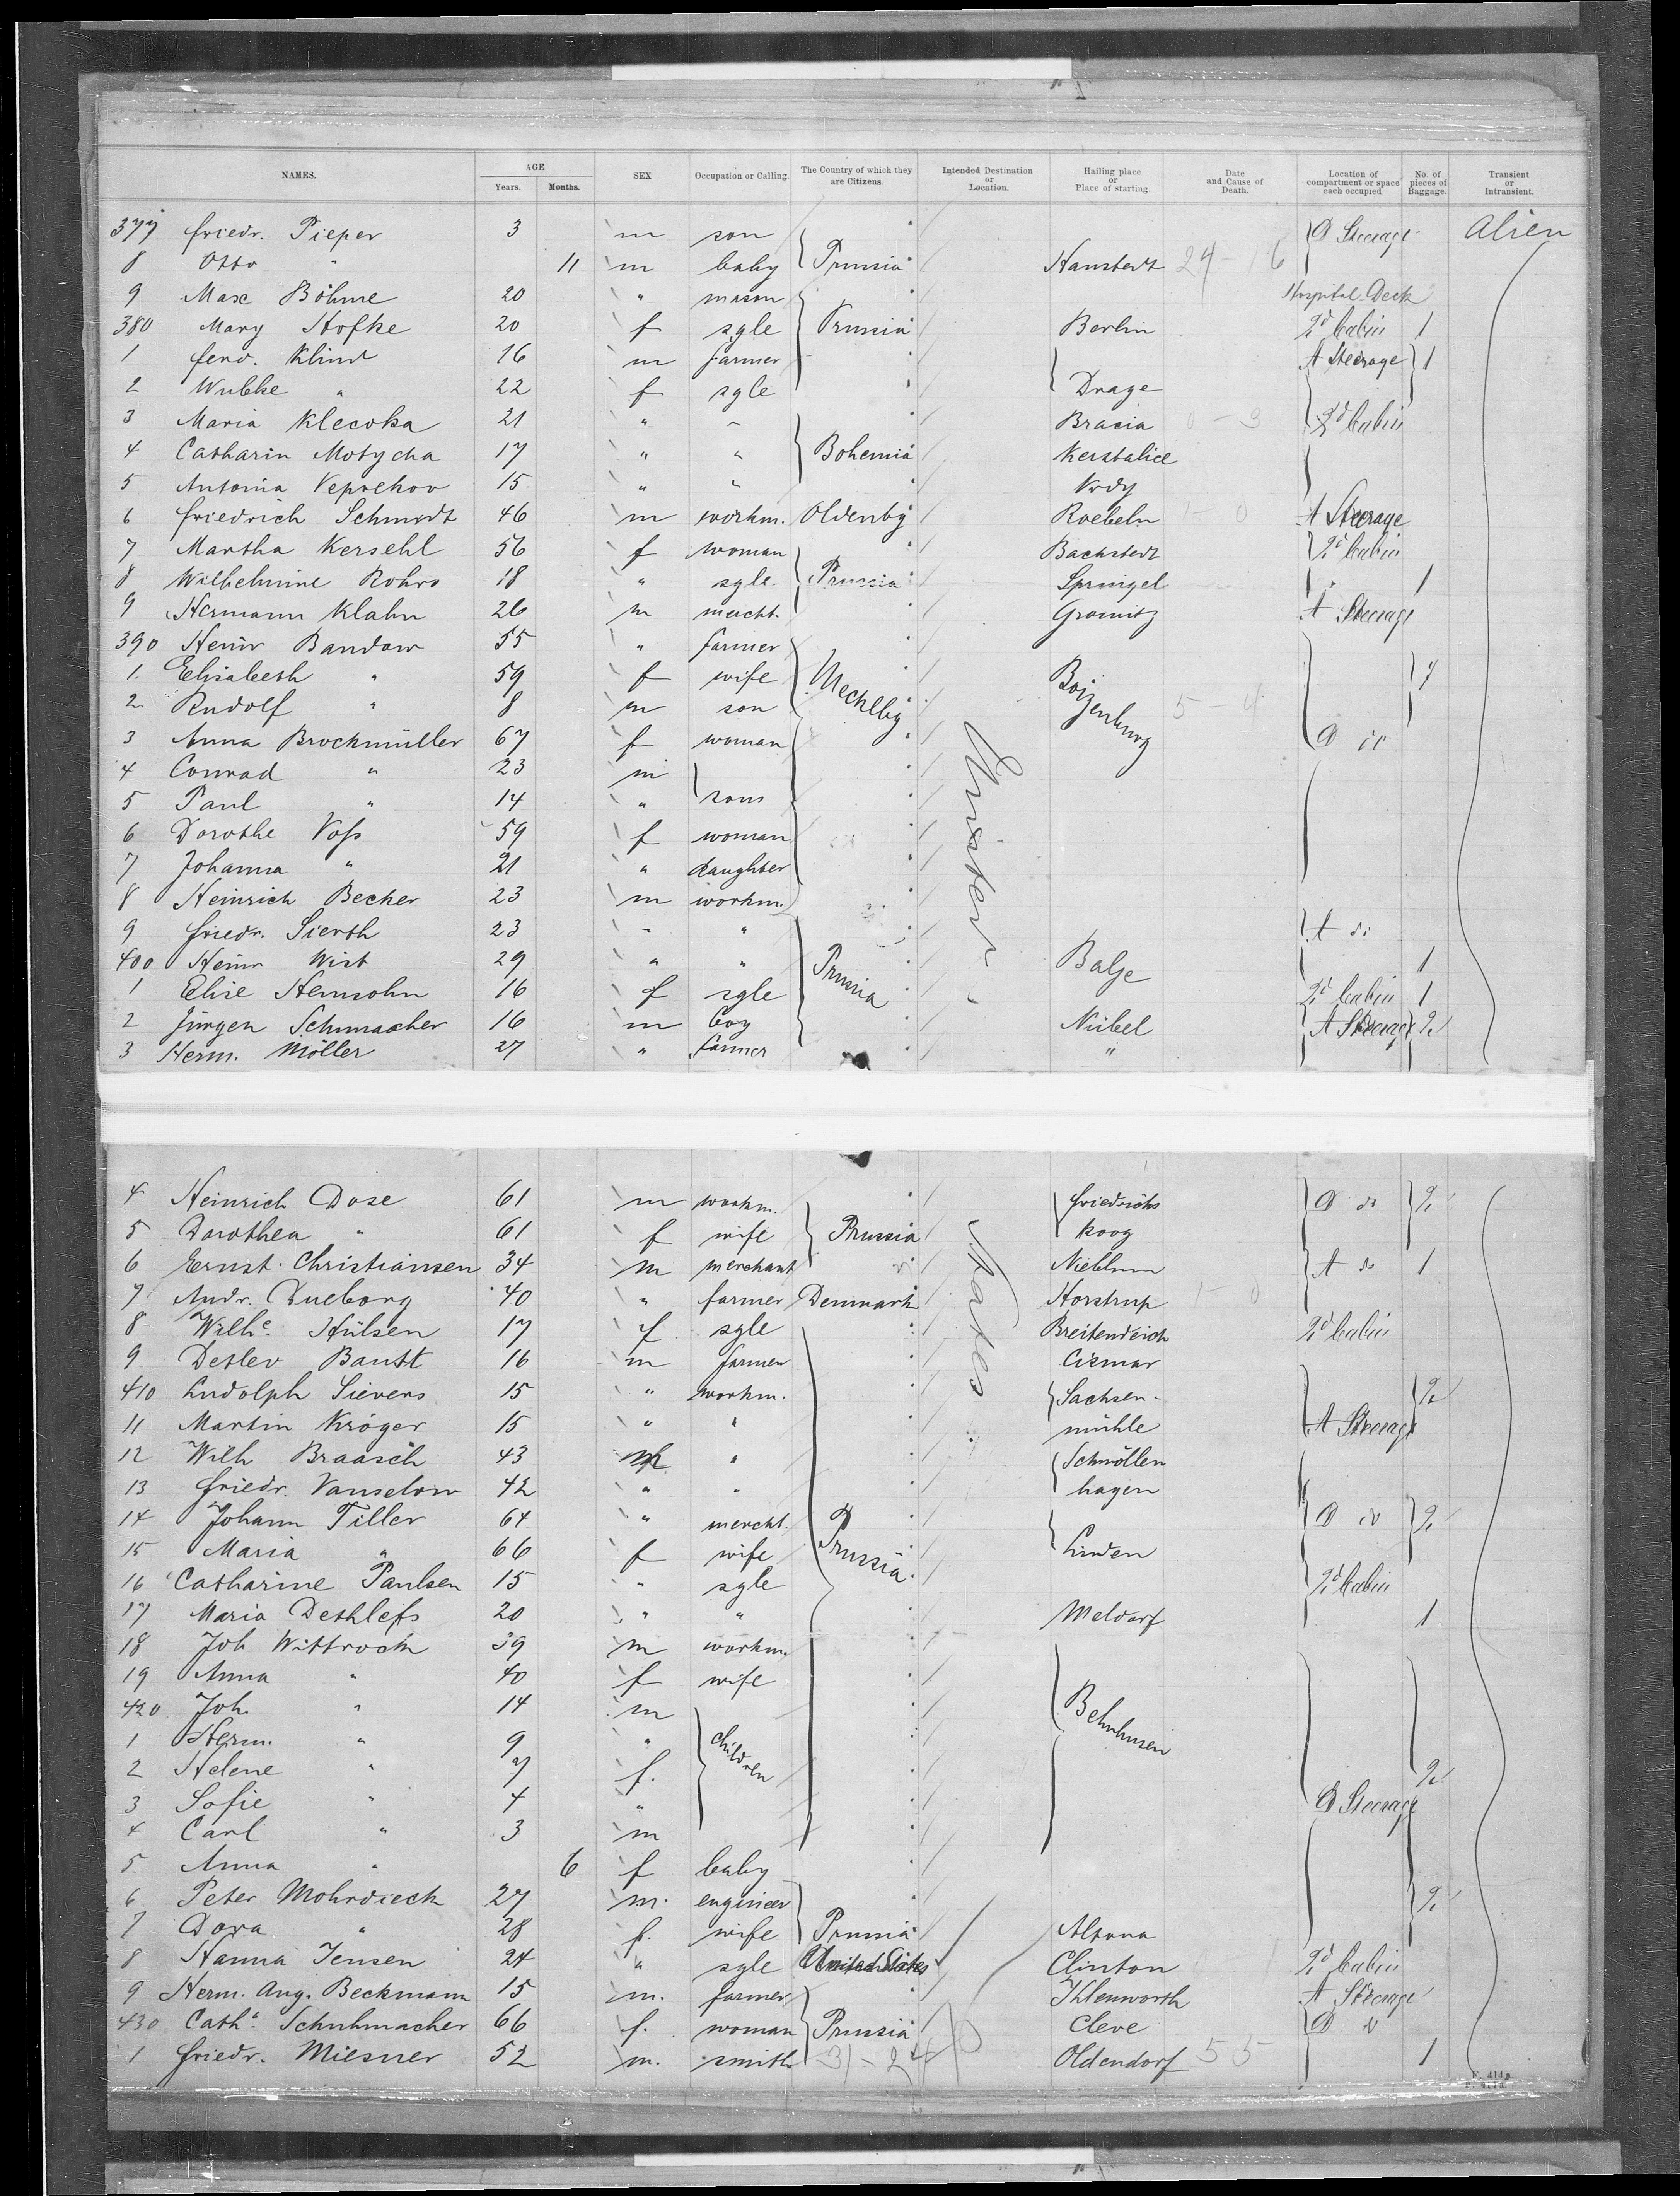 NAMES. AGE SEX Occupation or Calling. The Country of which they are Citizens. Intended Destination or Location. Hailing place or Place of starting. Date and Cause of Death. Location of compartment or space each occupied No. of pieces of Baggage. Transient or Intransient.
Years. Months.
377 Friedr. Pieper 3 m son D Steerage Alien
8 Otto " 11 m baby Prussia Hanstedt 24-16
9 Max Böhme 20 " mason Hospital Deck
380 Mary Hofke 20 f sgle Prussia Berlin 2d Cabin 1
1 Ferd. Klind 16 m farmer A Steerage 1
2 Wubke " 22 f sgle Drage
3 Maria Klecoka 21 " " Bracia 2d Cabin
4 Catharin Motycha 17 " " Bohemia Kerstalice
5 Antonia Veprekov 15 " " Vrdy
6 Friedrich Schmidt 46 m workm. Oldenbg Roebeln A Steerage
7 Martha Kersehl 56 f woman Backstedt 2d Cabin
8 Wilhelmine Rohrs 18 " sgle. Prussia Sprengel 1
9 Hermann Klahn 26 m mercht. Gromitz A Steerage
390 Heinr Bandow 55 " farmer
1. Elisabeth " 59 f wife Mecklbg Boizenburg 7
2 Rudolf " 8 m son 5-4
3 Anna Brockmüller 67 f woman D do
4 Conrad " 23 m
5 Paul " 14 " sons
6 Dorothe Voss 59 f woman
7 Johanna " 21 " daughter
8 Heinrich Becker 23 m workm.
9 Friedr. Sierth 23 " " A do
400 Heinr Wist 29 " " Prussia Balje 1
1 Elise Hemsohn 16 f sgle 2d Cabin 1
2 Jürgen Schumacher 16 m boy Nübel A Steerage 2
3 Herm. Möller 27 " farmer "
4 Heinrich Dose 61 m workm. Friedrichs D do 2
5 Dorothea " 61 f wife Prussia koog
6 Ernst Christiansen 34 m merchant Nieblum A do 1
7 Andr. Dueborg 40 " farmer Denmark Horstrup 1-0
8 Wilhe. Hülsen 17 f sgle Breitendeich 2d Cabin
9 Detlev Banst 16 m farmer Cismar
410 Ludolph Sievers 15 " workm. Sachsen- 2
11 Martin Kröger 15 " " mühle A Steerage
12 Wilh Braasch 43 m " Schmöllen
13 Friedr. Vanselow 42 " " hagen
14 Johann Tiller 64 " mercht. D do 2
15 Maria " 66 f wife Prussia Linden
16 Catharine Paulsen 15 " sgle 2d Cabin
17 Maria Dethlefs 20 " " Meldorf 1
18 Joh Wittrock 39 m workm.
19 Anna " 40 f wife
420 Joh. " 14 m Behnhusen
1 Herm. " 9 " children
2 Helene " 7 f. 2
3 Sofie " 4 " D Steerage
4 Carl " 3 m
5 Anna " 6 f baby
6 Peter Mohrdieck 27 m. engineer 2
7 Dora " 28 f. wife Prussia Altona
8 Hanna Jensen 24 " sgle United States Clinton 2d Cabin
9 Herm. Aug. Beckmann 15 m. farmer Ihlenworth A Steerage
430 Cath. Schuhmacher 66 f. woman Prussia Cleve D do
1 Friedr. Miesner 52 m. smith 31-24 Oldendorf 55 1
States